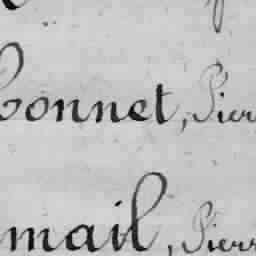 bonnet, Pier
mail, Pierr